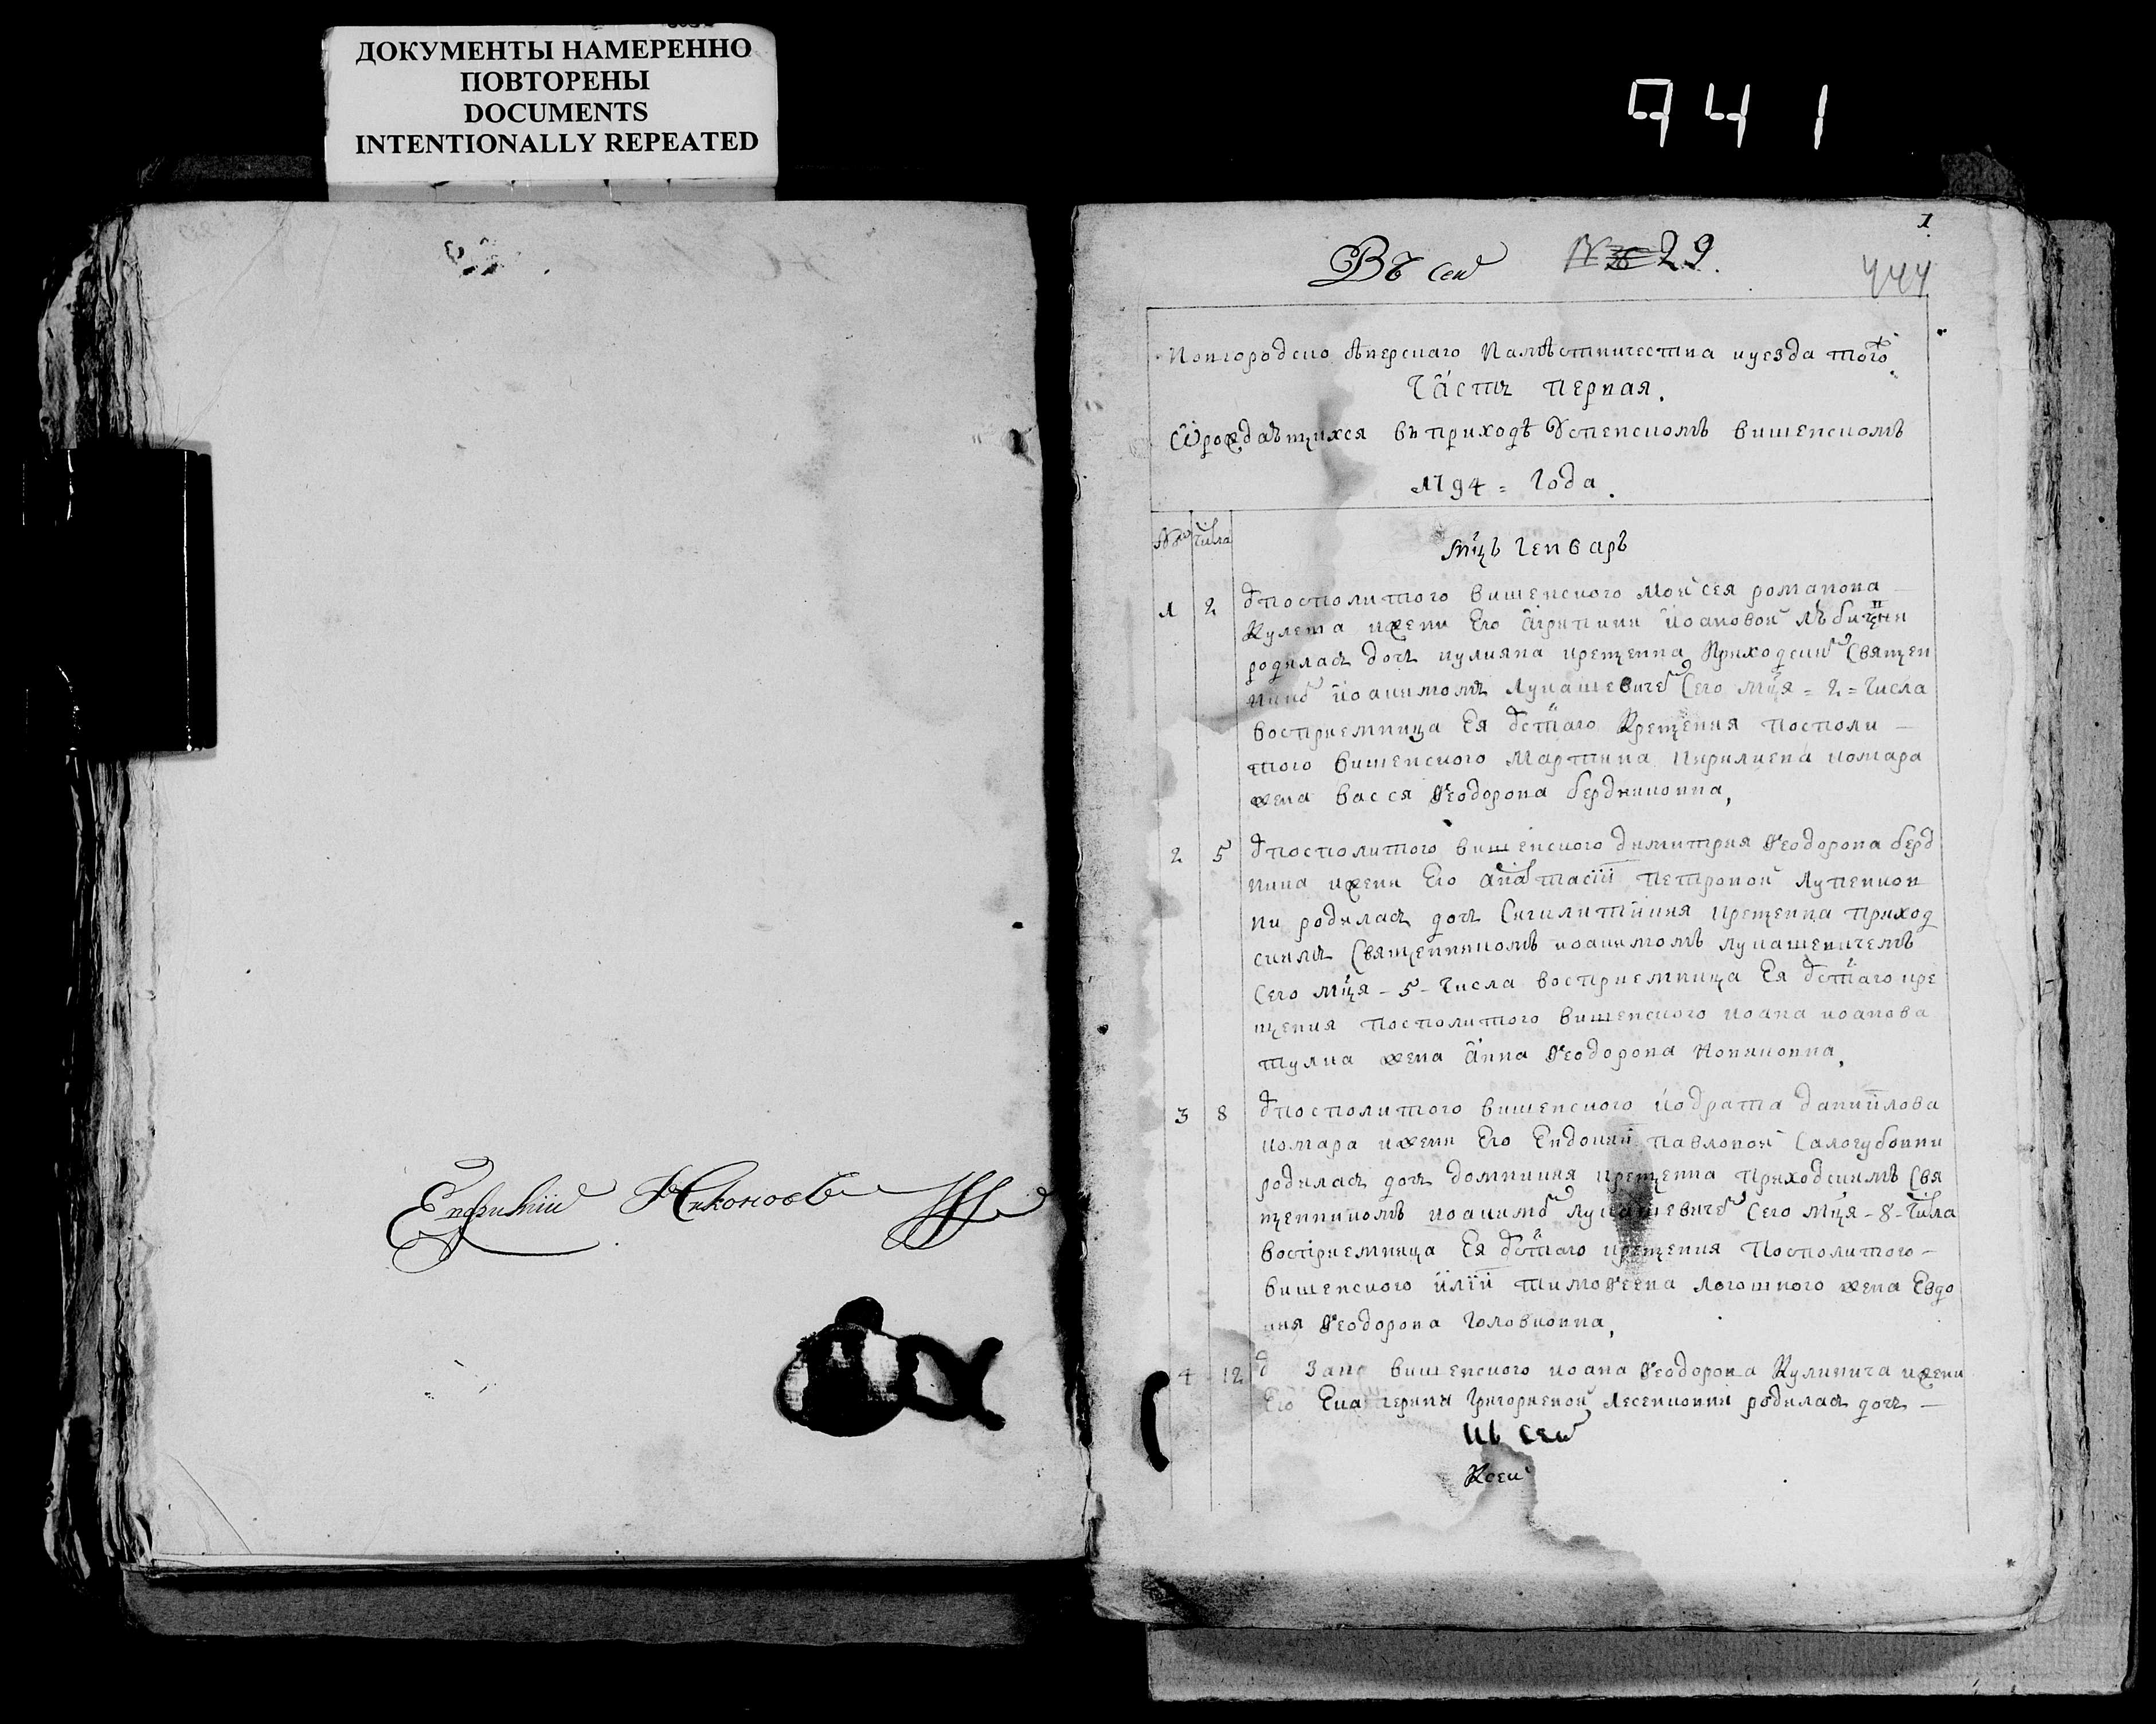 ДОКУМЕНТЫ НАМЕРЕННО
ПОВТОРЕНЫ
DOCUMENTS
INTENTIONALLY REPEATED
941
1
Въ сей № 29.
444
Новгородско Сѣверскаго Намѣстничества иуезда того
Часть первая.
Ѿрождаьщихся въ приходѣ Успенскомъ вишенскомъ
1794 = Года.
числа
Мц҃ь Генварь
1 2 Упосполитого вишенского Моисея романова
Кулета ижени Его Агрипини Иоановой
родилась дочъ иулияна крещенна Приходским Священ
ником иоакимомъ Лукашевичем Сего мц҃я = 2 = числа
восприемница Ея Уст҃аго Крещения посполи -
того вишенского Мартина Кирилиева комара
жена васся Ѳеодорова бердниковна,
2 5 Упосполитого вишенского димитрия Ѳеодорова берд
ника ижени Его анастасїй петровой Лупенков
ни родилась дочъ Сигилитиикия крещенна приход
скимъ Священникомъ иоакимомъ лукашевичемъ
Сего мц҃я - 5 - числа восприемница Ея Уст҃аго кре
щения посполитого вишенского иоана иоанова
тулка жена Анна Ѳеодорова Коняковна,
3 8 Упосполитого вишенского кодрата даниилова
комара ижени Его Евдокий павловой Салогубовни
родилась дочъ домникия крещенна приходскимъ Свя
щенникомъ иоакимом Лукашевичем Сего мц҃я - 8 - числа
восприемница Ея Уст҃аго крещения Посполитого -
вишенского илїй тимоѲеева логошного жена Евдо
кия Ѳеодорова Головковна,
4 12 У вишенского иоана Ѳеодорова Кулинича ижени
Его Екатерини Григориевой Лесенковни родилась дочъ -
Ксен
Никоновъ